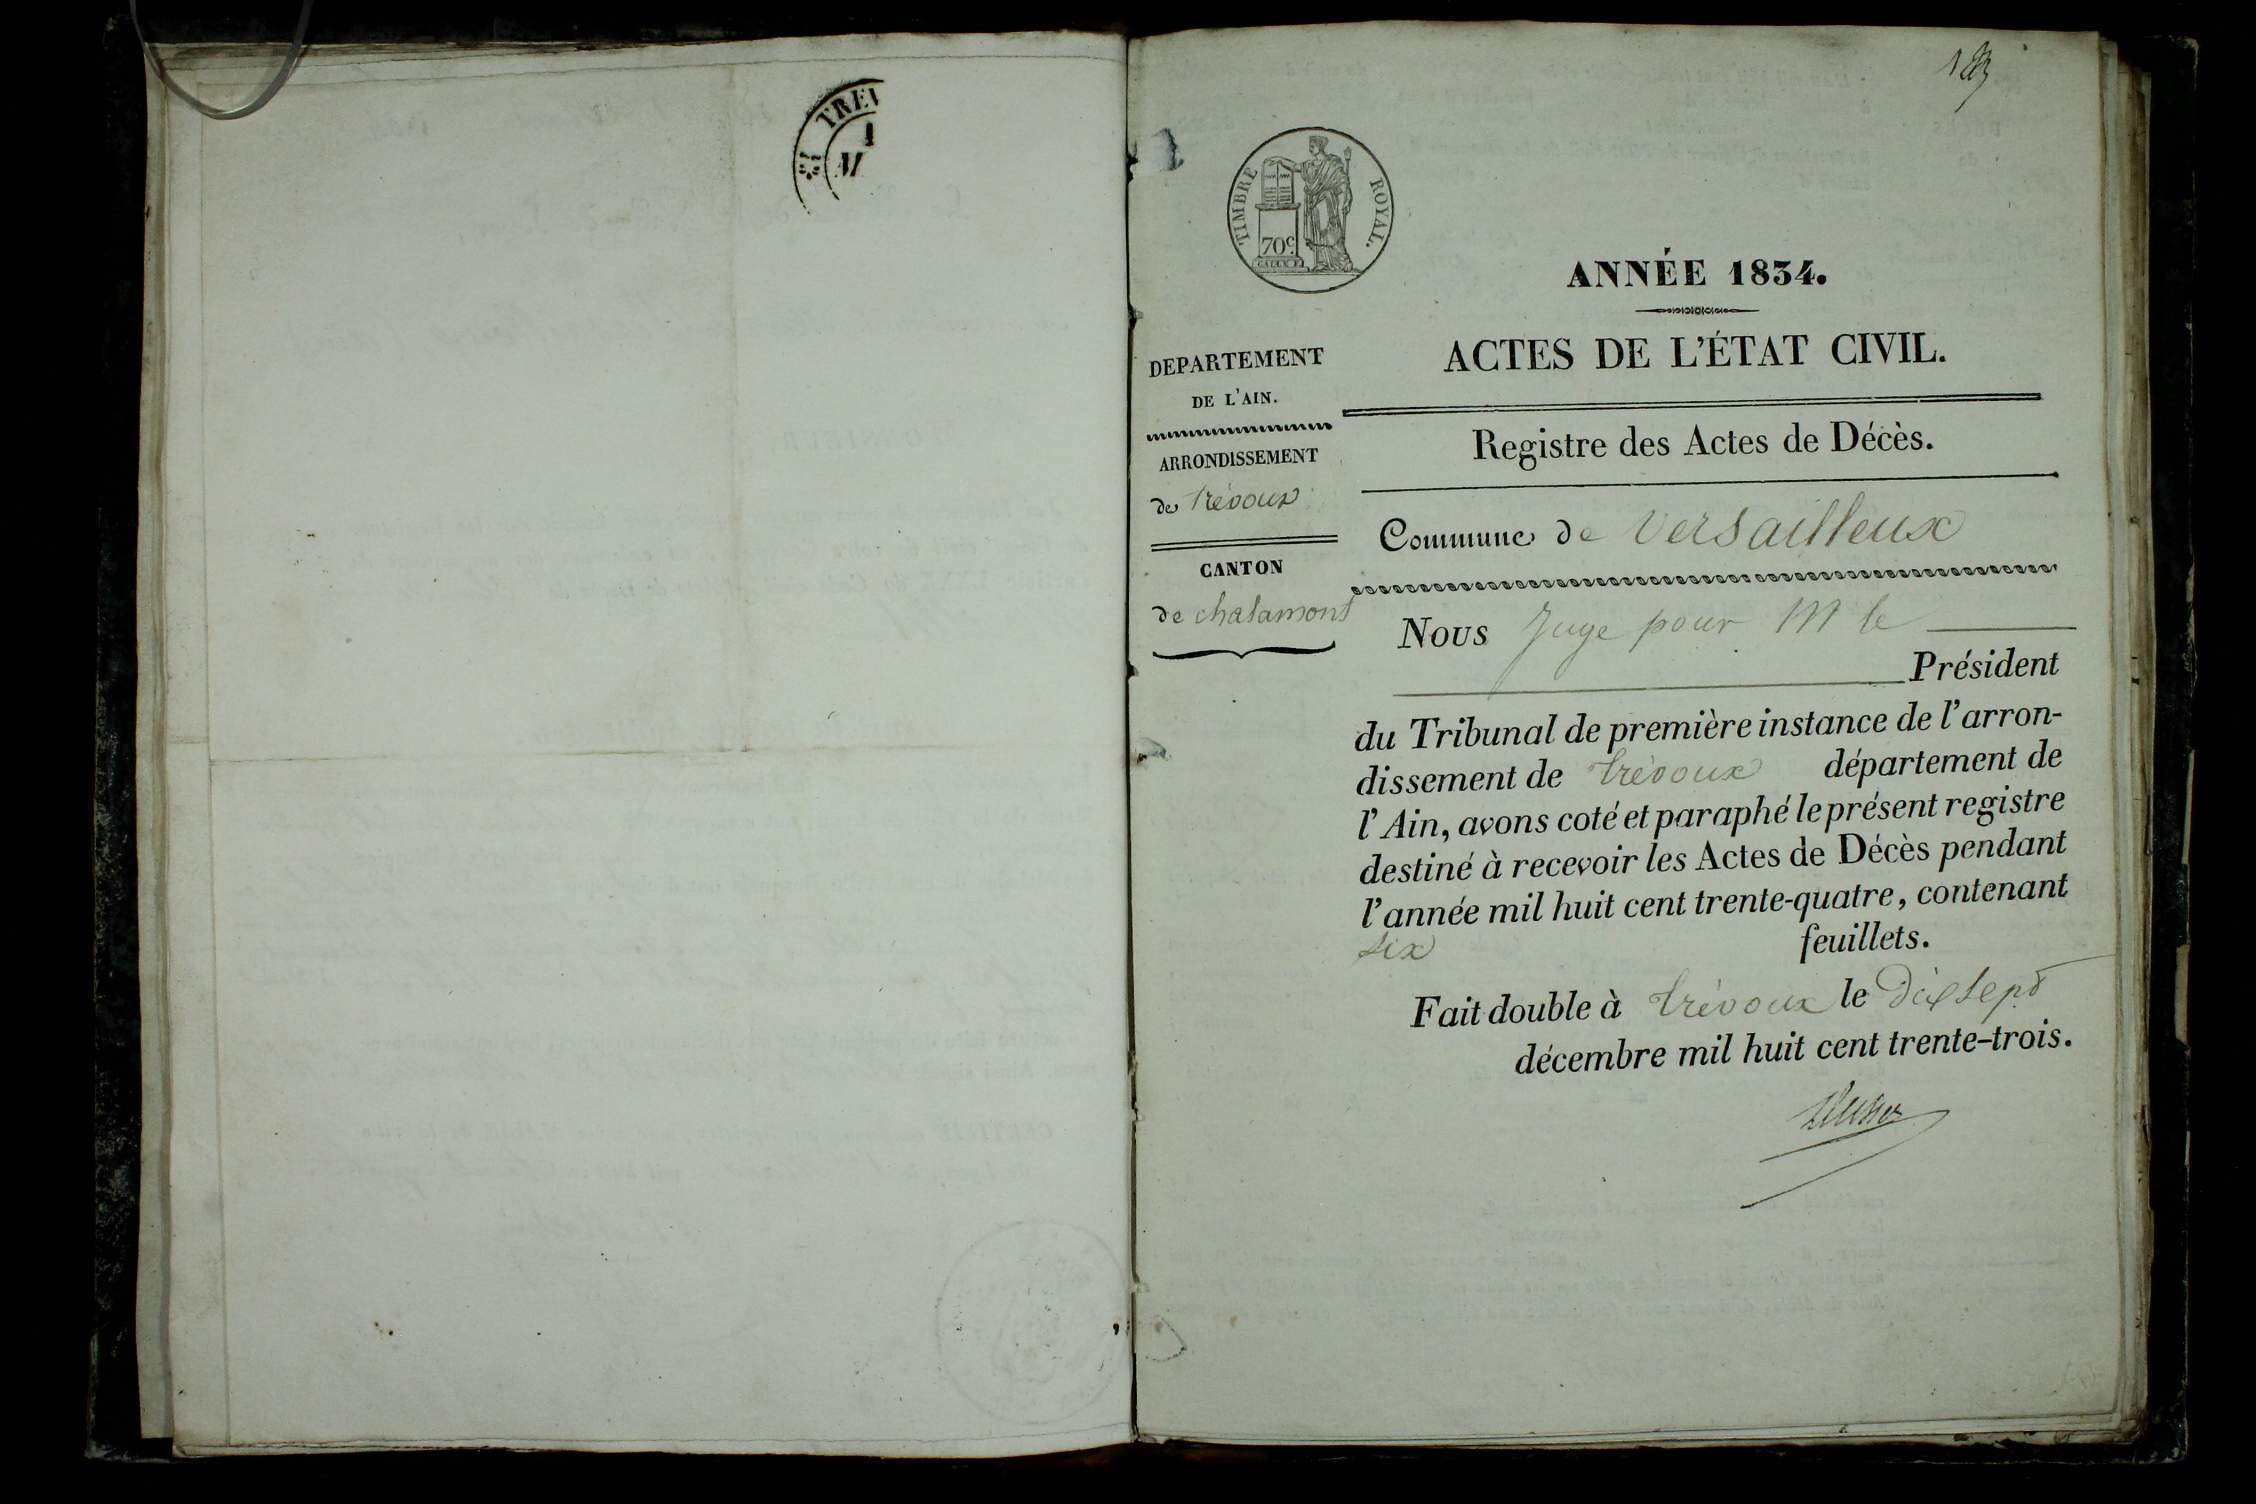 TREV
1
M
TIMBRE ROYAL.
70c.
ANNÉE 1834.
ACTES DE L'ÉTAT CIVIL.
DEPARTEMENT
DE L'AIN.
ARRONDISSEMENT
de Trévoux
CANTON
de chalamont
Registre des Actes de Décès.
Commune de Versailleux
Nous Juge pour M le
Président
du Tribunal de première instance de l'arron-
dissement de trévoux département de
l'Ain, avons coté et paraphé le présent registre
destiné à recevoir les Actes de Décès pendant
l'année mil huit cent trente-quatre, contenant
six feuillets.
Fait double à trévoux le dix sept
décembre mil huit cent trente-trois.